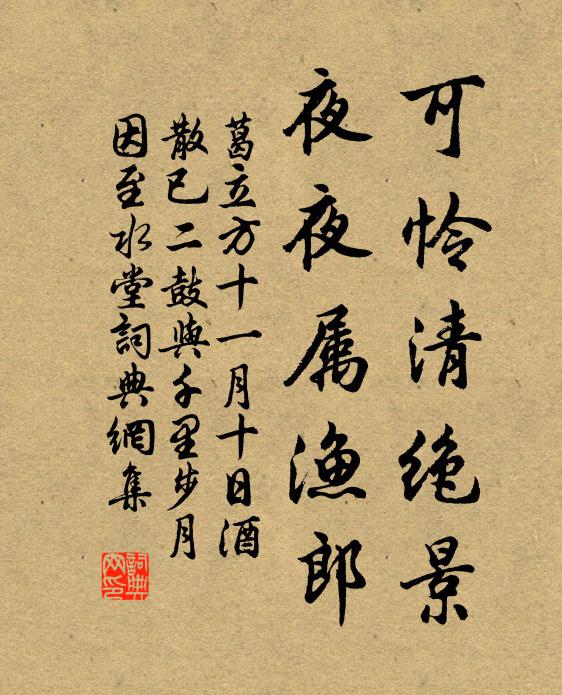 可怜清绝景
夜夜属渔郎
葛立方十一月十日酒
散已二鼓與千里步月
因至水堂詞典網集
詞典网印